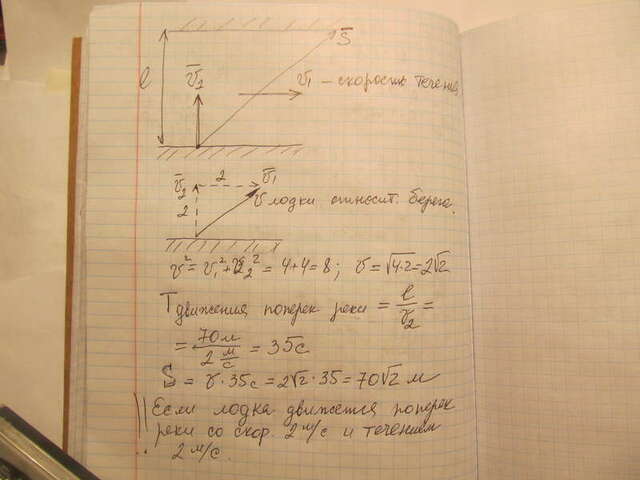 S̄
l
v̄₂
v̄₁ – скорость течения
v̄₂
2
v̄₁
2
v лодки относит. берега.
v² = v₁² + v₂² = 4+4 = 8; v = √4·2 = 2√2
T движения поперек реки = l/v₂ =
= 70м / 2 м/с = 35с
S = v · 35с = 2√2 · 35 = 70√2 м
Если лодка движется поперек
реки со скор. 2 м/с и течением
2 м/с.